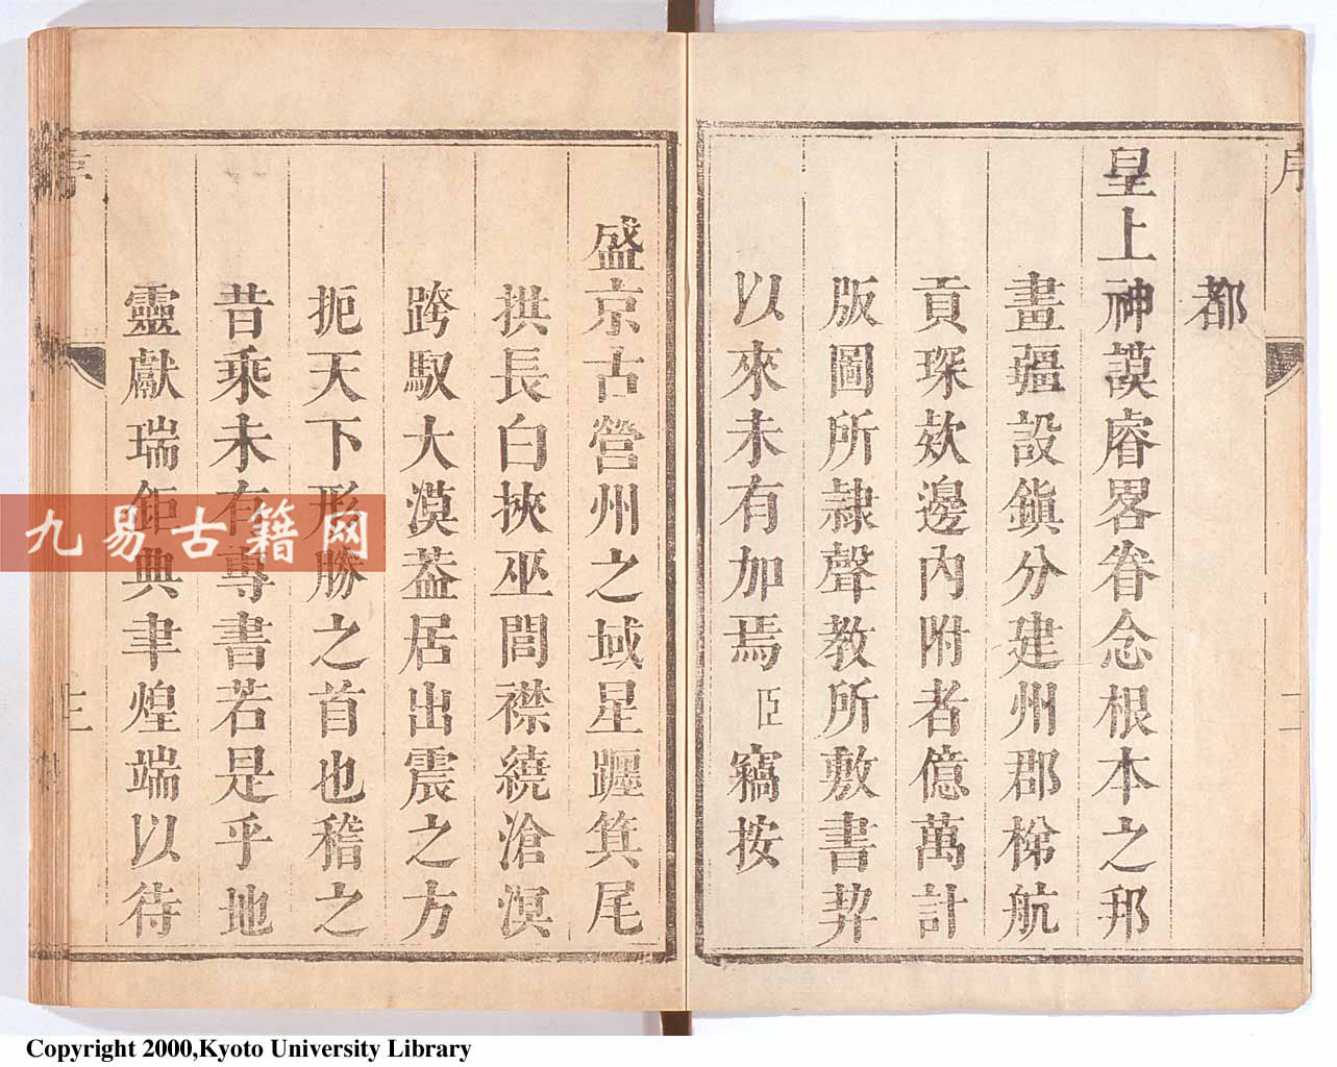 序
二
都
皇上神謨睿畧眷念根本之邦
畫疆設鎮分建州郡梯航
貢琛欵邊內附者億萬計
版圖所隷聲教所敷書契
以來未有加焉臣竊按
盛京古營州之域星躔箕尾
拱長白挾巫閭襟繞滄溟
跨馭大漠葢居出震之方
扼天下形勝之首也稽之
昔乘未有專書若是乎地
靈獻瑞鉅典聿煌端以待
序
九易古籍网
Copyright 2000,Kyoto University Library